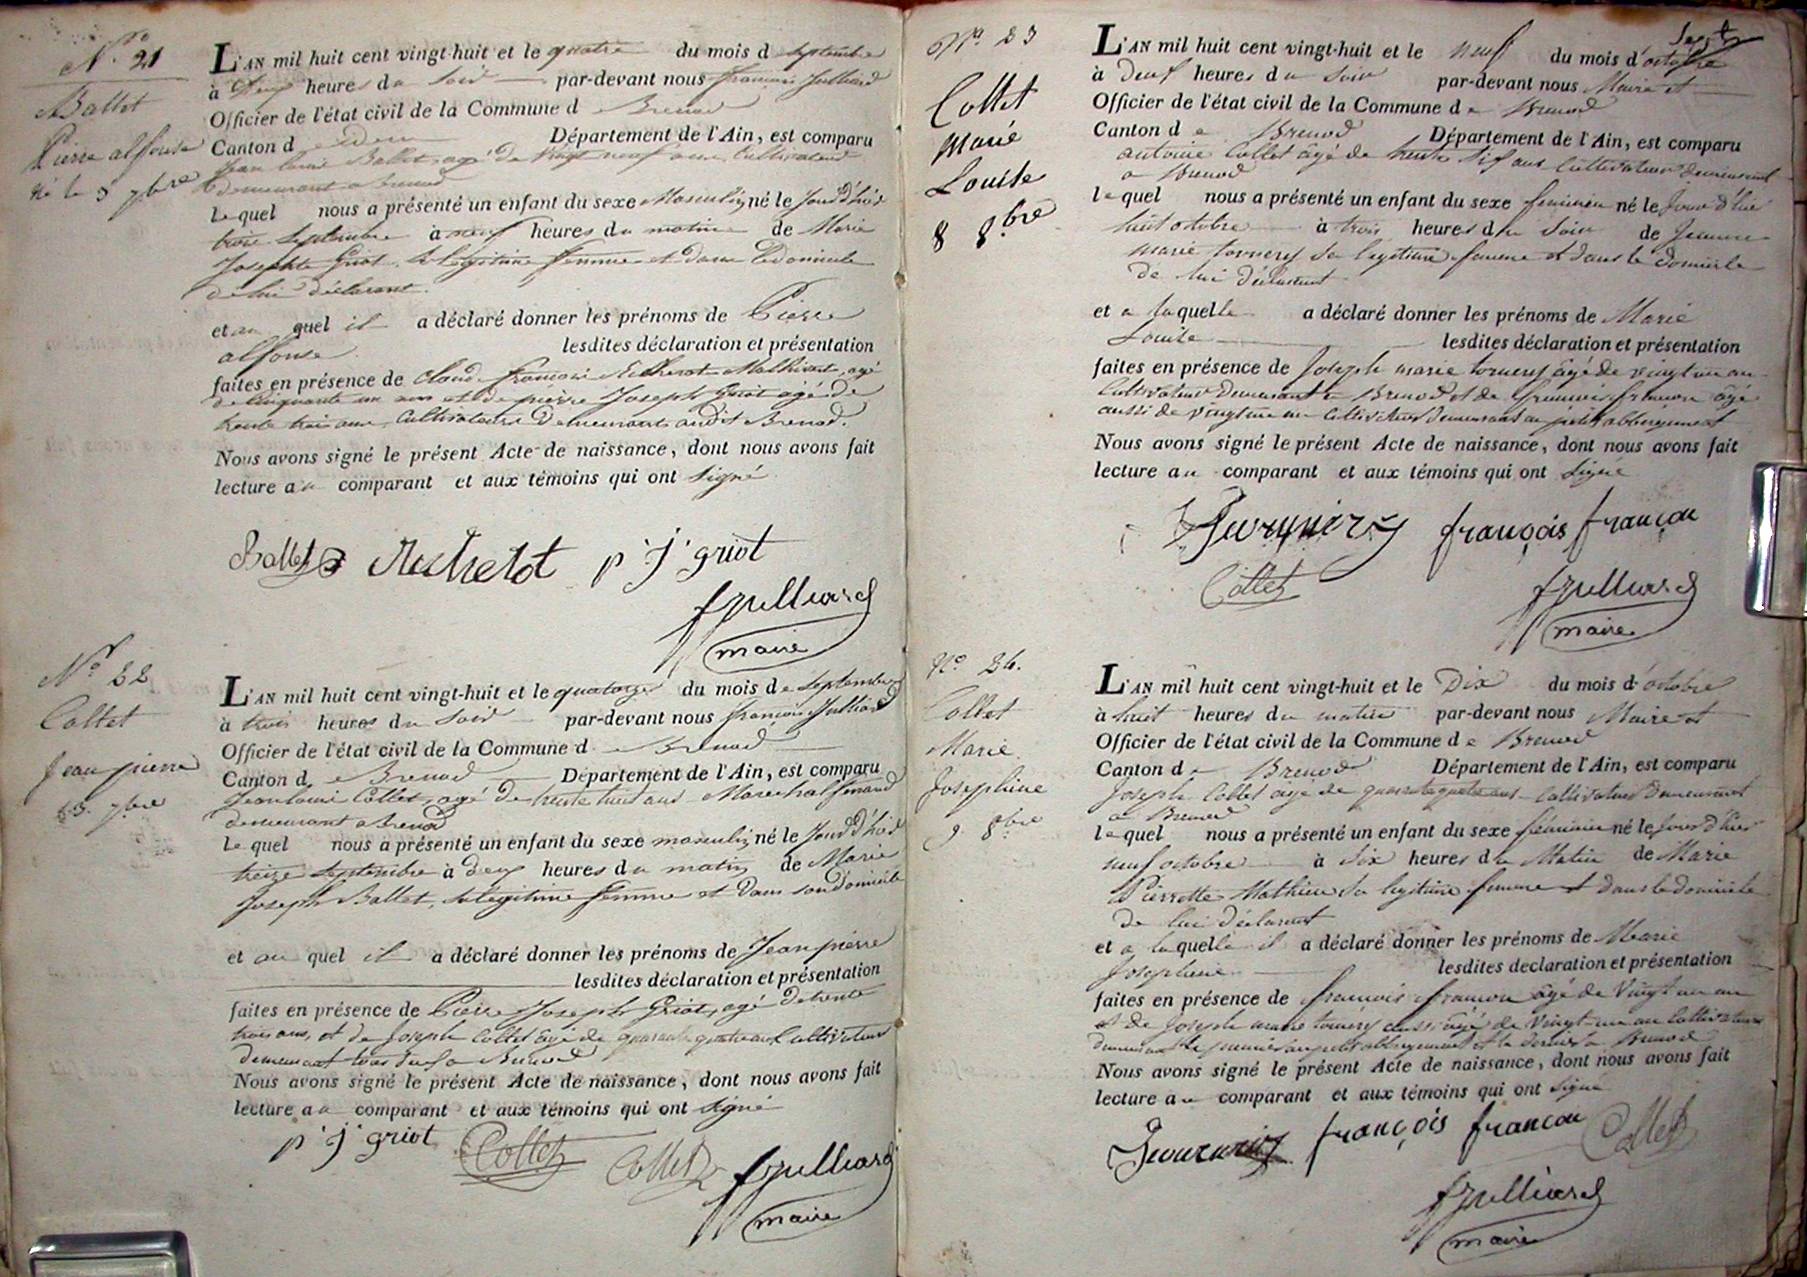 N.º 21
Ballet
Pierre alfonse
né le 3 7bre
L'AN mil huit cent vingt-huit et le quatre du mois d septembre
à deux heures du soir par-devant nous françois Julliard
Officier de l'état civil de la Commune de Brenod
Canton d Département de l'Ain, est comparu
Jean louis Ballet, agé de vingt neuf ans, Cultivateur
demeurant a Brenod
Lequel nous a présenté un enfant du sexe Masculin né le Jour d'hier
trois Septembre à neuf heures du matin de Marie
Josephte Griot, sa legitime femme et dans le domicile
de lui déclarant.
et au quel il a déclaré donner les prénoms de Pierre
alfonse lesdites déclaration et présentation
faites en présence de Claude françois Mathieu, agé
de Cinquante un ans et de pierre Joseph Griot agé de
trente trois ans, Cultivateurs Demeurant audit Brenod.
Nous avons signé le présent Acte de naissance, dont nous avons fait
lecture au comparant et aux témoins qui ont signé
Ballet p j griot
fJulliard
maire
N.º 22
Collet
Jean pierre
13. 7bre
L'AN mil huit cent vingt-huit et le quatorze du mois de Septembre
à trois heures du soir par-devant nous françois Julliard
Officier de l'état civil de la Commune de Brenod
Canton de Brenod Département de l'Ain, est comparu
Jean louis Collet, agé de trente huit ans Marechal ferrand
demeurant a Brenod
Lequel nous a présenté un enfant du sexe masculin né le Jour d'hier
treize septembre à deux heures du matin de Marie
Joseph Ballet, sa legitime femme et Dans son domicile
et au quel il a déclaré donner les prénoms de Jean pierre
lesdites déclaration et présentation
faites en présence de Pierre Joseph Griot, agé de trente
trois ans, et de Joseph Collet agé de quarante quatre ans Cultivateurs
demeurant tous deux a Brenod
Nous avons signé le présent Acte de naissance, dont nous avons fait
lecture au comparant et aux témoins qui ont signé
p j griot Collet Collet fJulliard
maire
Nº. 23
Collet
Marie
Louise
8 8bre
L'AN mil huit cent vingt-huit et le neuf du mois d'octobre
à deux heures du soir par-devant nous Maire et
Officier de l'état civil de la Commune de Brenod
Canton de Brenod Département de l'Ain, est comparu
antoine Collet âgé de trente six ans Cultivateur demeurant
a Brenod
lequel nous a présenté un enfant du sexe feminin né le Jour d'hier
huit octobre à trois heures du soir de Jeanne
marie tornery sa legitime femme et dans le domicile
de lui déclarant
et a laquelle a déclaré donner les prénoms de Marie
Louise lesdites déclaration et présentation
faites en présence de Joseph marie tornery âgé de vingt un an
Cultivateur demeurant a Brenod et de françois françon âgé
aussi de vingt un an Cultivateur demeurant au petit abbergement
Nous avons signé le présent Acte de naissance, dont nous avons fait
lecture au comparant et aux témoins qui ont signé
françois françon
Collet fJulliard
maire
Nº. 24.
Collet
Marie
Josephine
9 8bre
L'AN mil huit cent vingt-huit et le Dix du mois d'octobre
à huit heures du matin par-devant nous Maire et
Officier de l'état civil de la Commune de Brenod
Canton de Brenod Département de l'Ain, est comparu
Joseph Collet agé de quarante quatre ans Cultivateur Demeurant
a Brenod
lequel nous a présenté un enfant du sexe féminin né le Jour d'hier
neuf octobre à six heures du Matin de Marie
Pierrette Mathieu sa legitime femme et dans le domicile
de lui déclarant
et a laquelle il a déclaré donner les prénoms de Marie
Josephine lesdites declaration et présentation
faites en présence de françois françon âgé de vingt un an
et de Joseph marie tornery aussi âgé de vingt un an Cultivateurs
demeurant le premier au petit abbergement et le dernier a Brenod
Nous avons signé le présent Acte de naissance, dont nous avons fait
lecture au comparant et aux témoins qui ont signé
françois françon Collet
fJulliard
maire